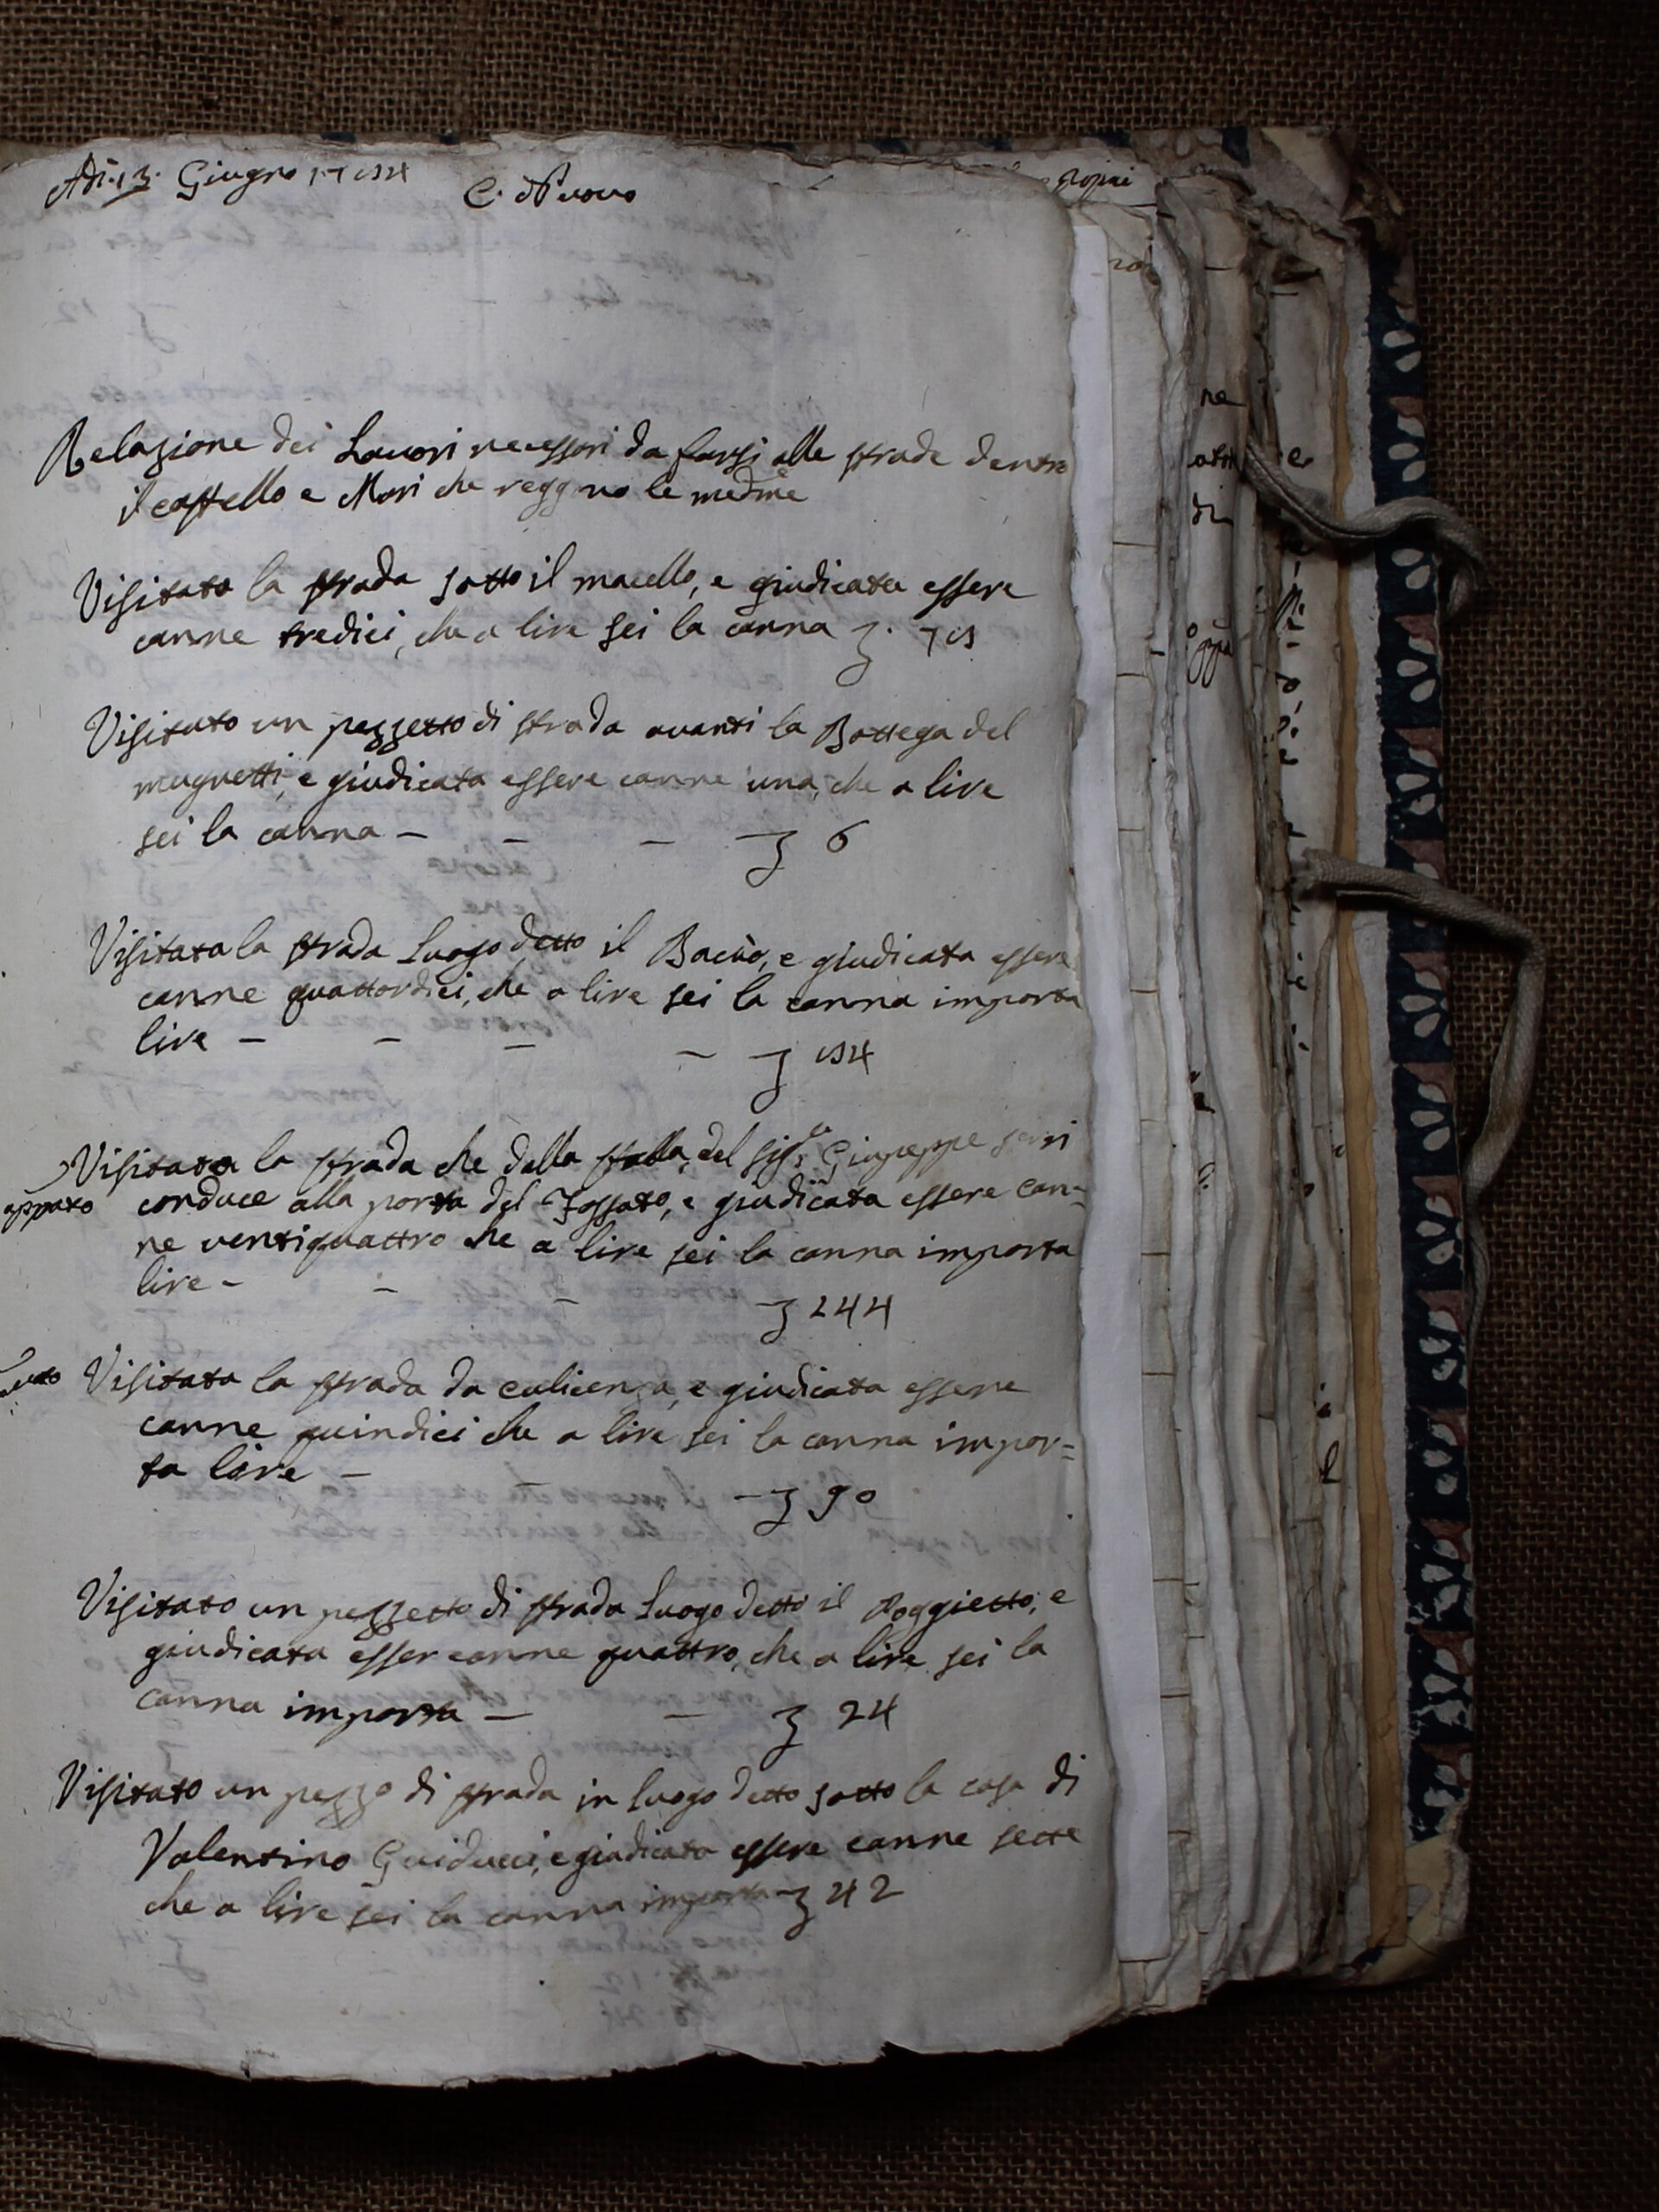 Adì. 13. Giugno 1784
C. Nuovo
Relazione dei Lavori necessari da farsi alle strade dentro
il castello e Mori che reggono le medme
Visitata la strada sotto il macello, e giudicata essere
canne tredici, che a lire sei la canna 78
Visitato un pezzetto di strada avanti la Bottega del
mugnetti, e giudicata essere canne una, che a lire
sei la canna - - - 6
Visitata la strada Luogo detto il Bacìo, e giudicata essere
canne quattordici, che a lire sei la canna importa
lire - - - - 84
Visitata la strada che dalla stalla del Sigr Giuseppe
appato conduce alla porta del Fossato, e giudicata essere can=
ne ventiquattro che a lire sei la canna importa
lire - - - 144
Visitata la strada da culicenza, e giudicata essere
canne quindici che a lire sei la canna impor=
ta lire - - - 90
Visitato un pezzetto di strada Luogo detto il Poggietto, e
giudicata esser canne quattro, che a lire sei la
canna importa - - 24
Visitato un pezzo di strada in luogo detto sotto la casa di
Valentino Guiducci, e giudicata essere canne sette
che a lire sei la canna importa 42